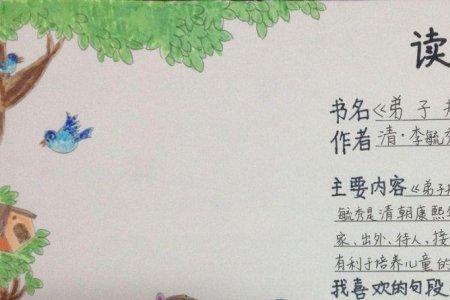 读
书名《弟子
作者 清·李毓
主要内容《弟子
毓秀是清朝康熙
家、出外、待人、接
有利于培养儿童的
我喜欢的句段